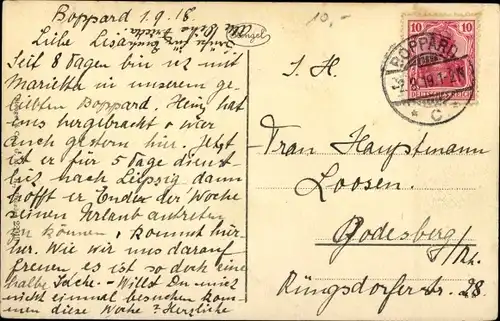 Boppard 1.9.18.
Liebe Lisa
Seit 8 Tagen bin ich mit
Marietta in unserem ge-
liebten Boppard. Heinz hat
uns hergebracht + war
auch gestern hier. Jetzt
ist er für 5 Tage dienst-
lich nach Leipzig dann
hofft er Ende der Woche
seinen Urlaub antreten
zu können, kommt hier-
her. Wie wir uns darauf
freuen es ist so doch eine
halbe Sache. - Willst Du mich
nicht einmal besuchen kom-
men diese Woche? Herzliche
Grüße
Engel
10,-
10
DEUTSCHES REICH
BOPPARD
* C *
S. H.
Frau Hauptmann
Loosen.
Godesberg
/Rh.
Rüngsdorferstr. 28.